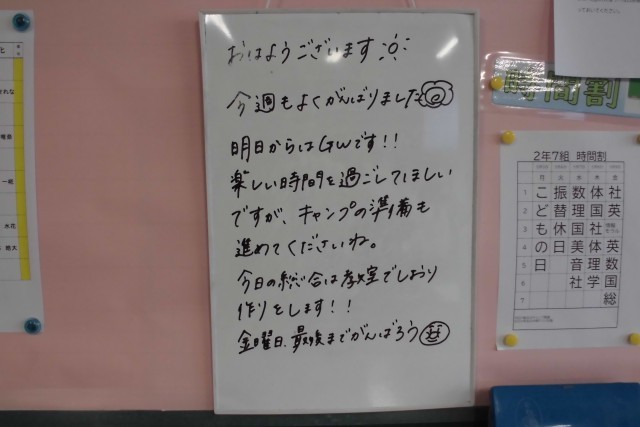 おはようございます
今週もよくがんばりました
明日からはGWです!!
楽しい時間を過ごしてほしい
ですが、キャンプの準備も
進めてくださいね。
今日の総合は教室でしおり
作りをします!!
金曜日、最後までがんばろう
時間割
2年7組 時間割
月 火 水 木 金
1 こ 振 数 体 社
2 ど 替 理 国 英
3 も 休 国 社
4 の 日 美 体 英
5 日 音 理 数
6 社 学 国
7 総